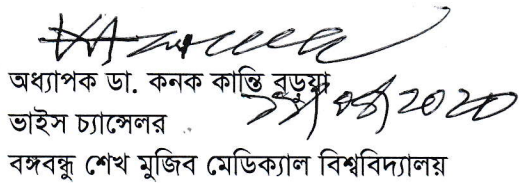 অধ্যাপক ডা. কনক কান্তি বড়ুয়া
ভাইস চ্যান্সেলর
বঙ্গবন্ধু শেখ মুজিব মেডিক্যাল বিশ্ববিদ্যালয়